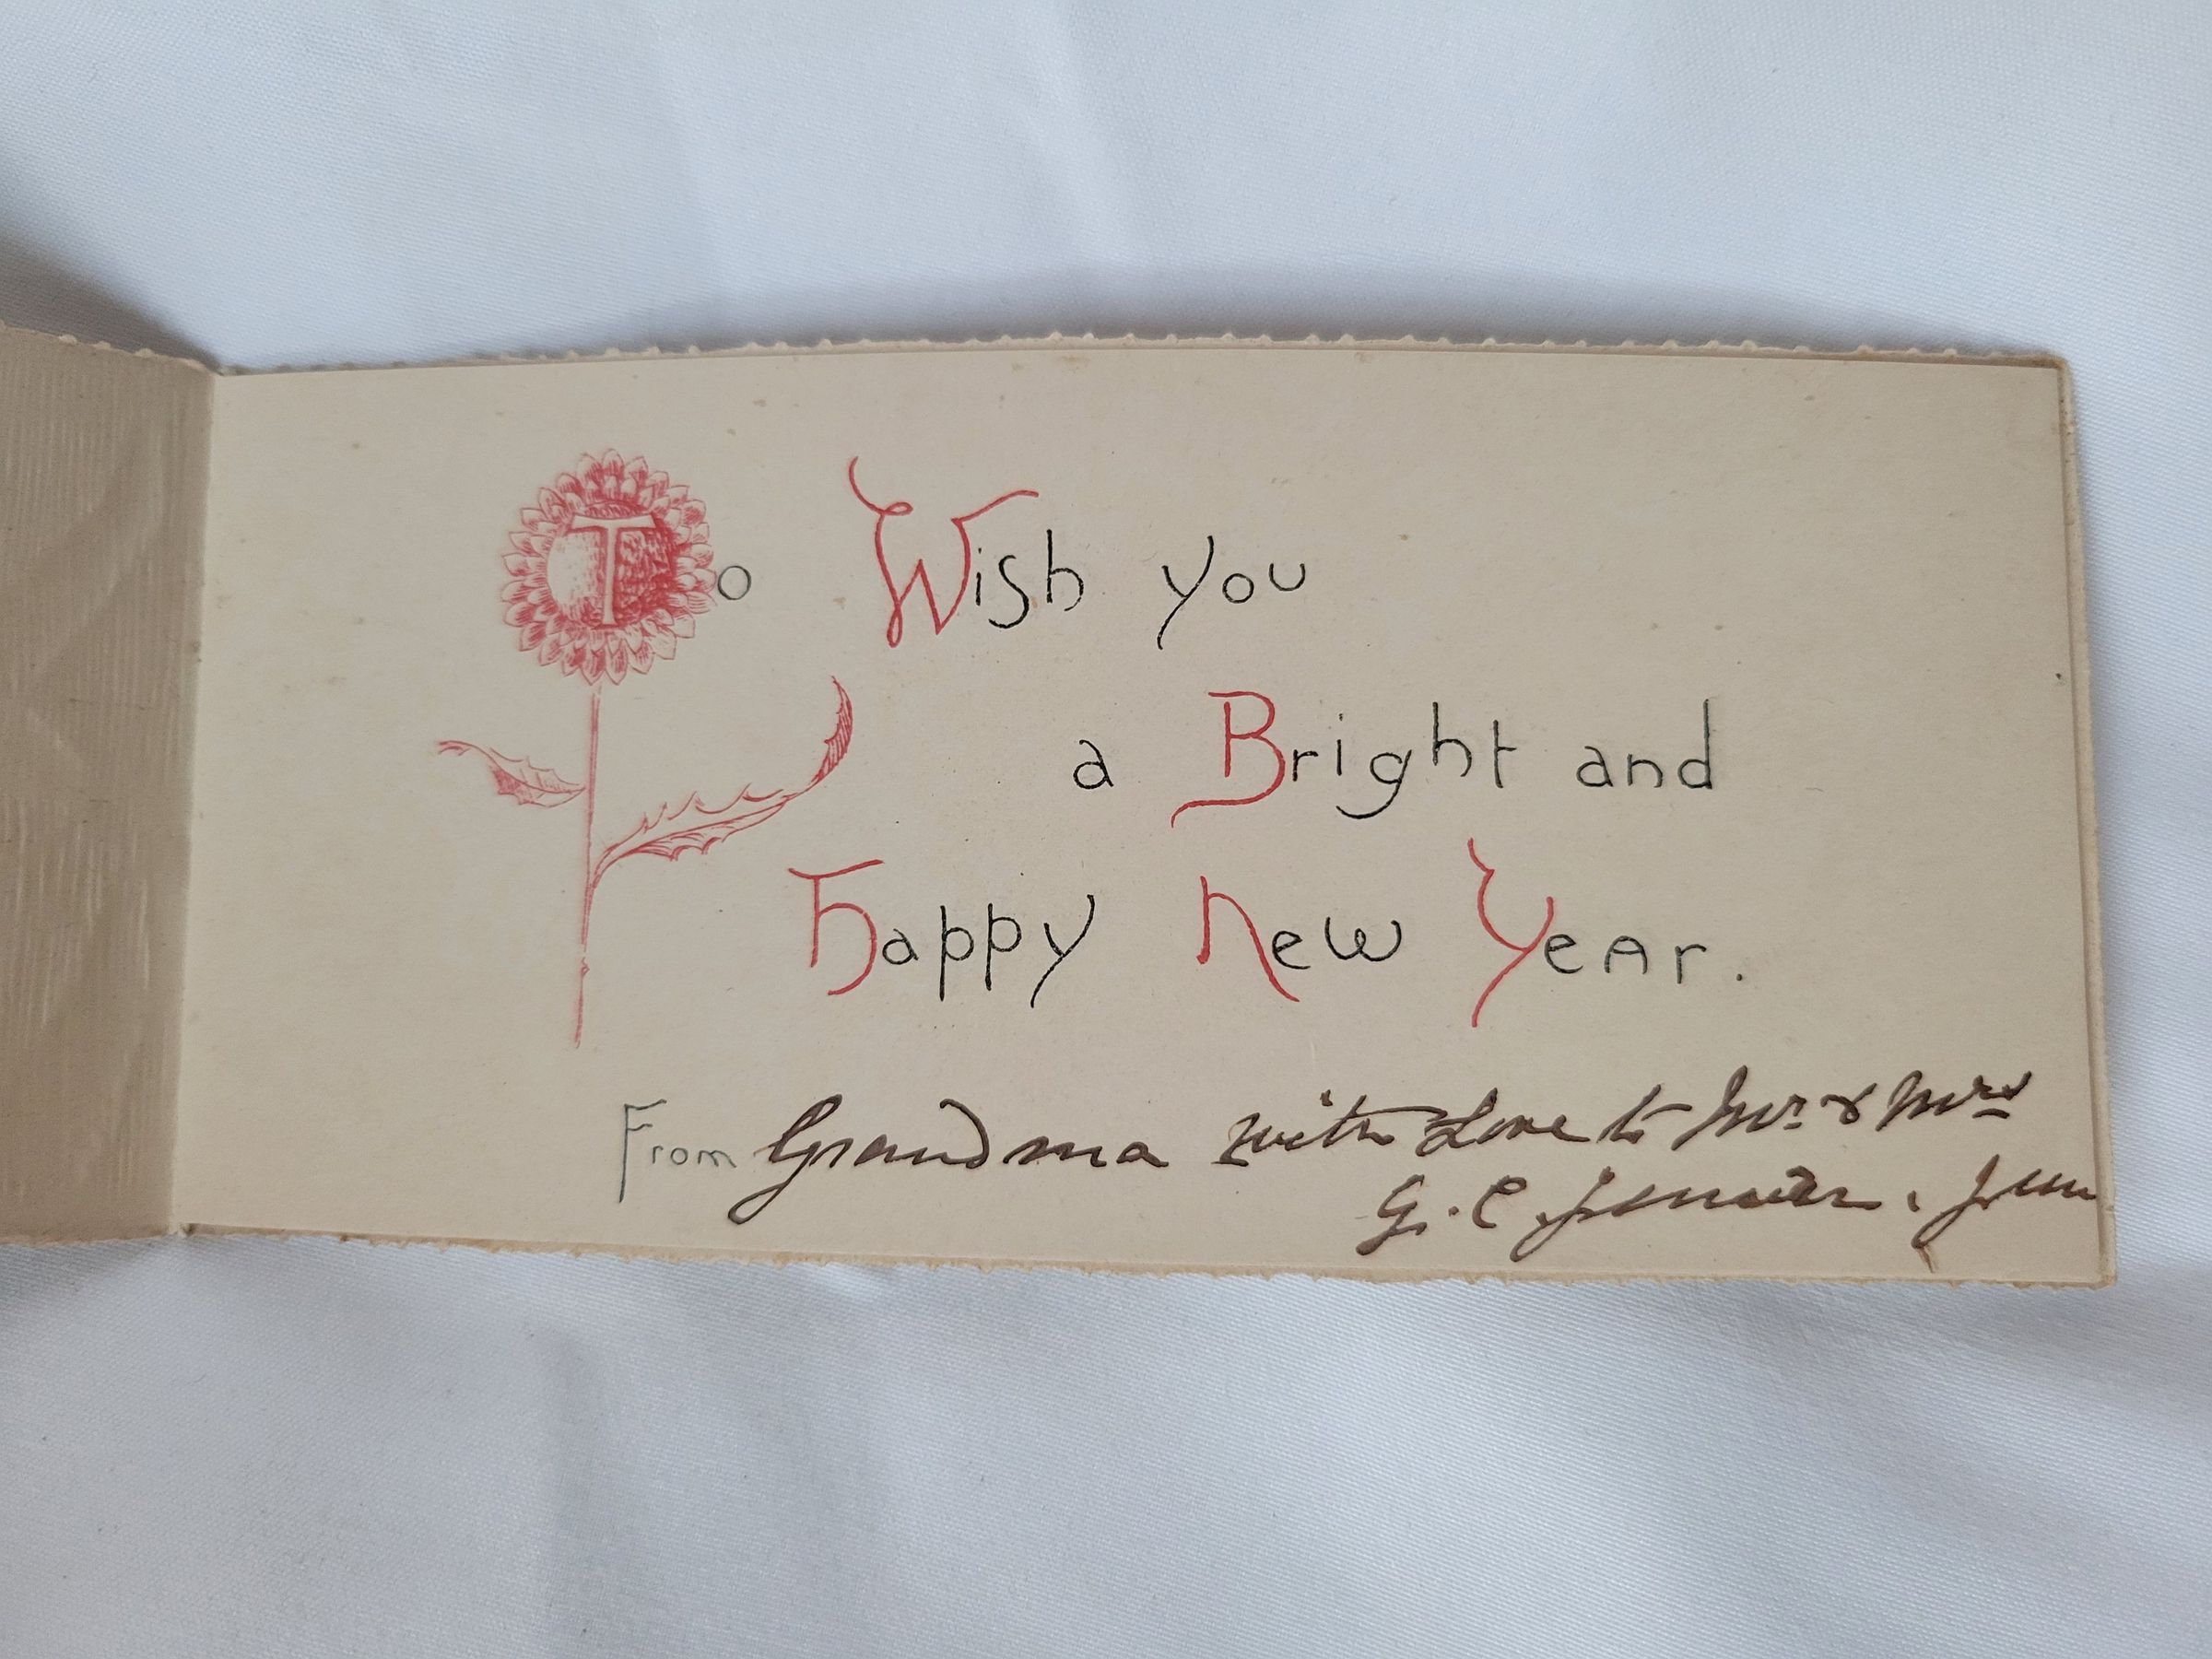 To Wish you
a Bright and
Happy New Year.
From Grandma with Love to Mr. & Mrs
G. C.